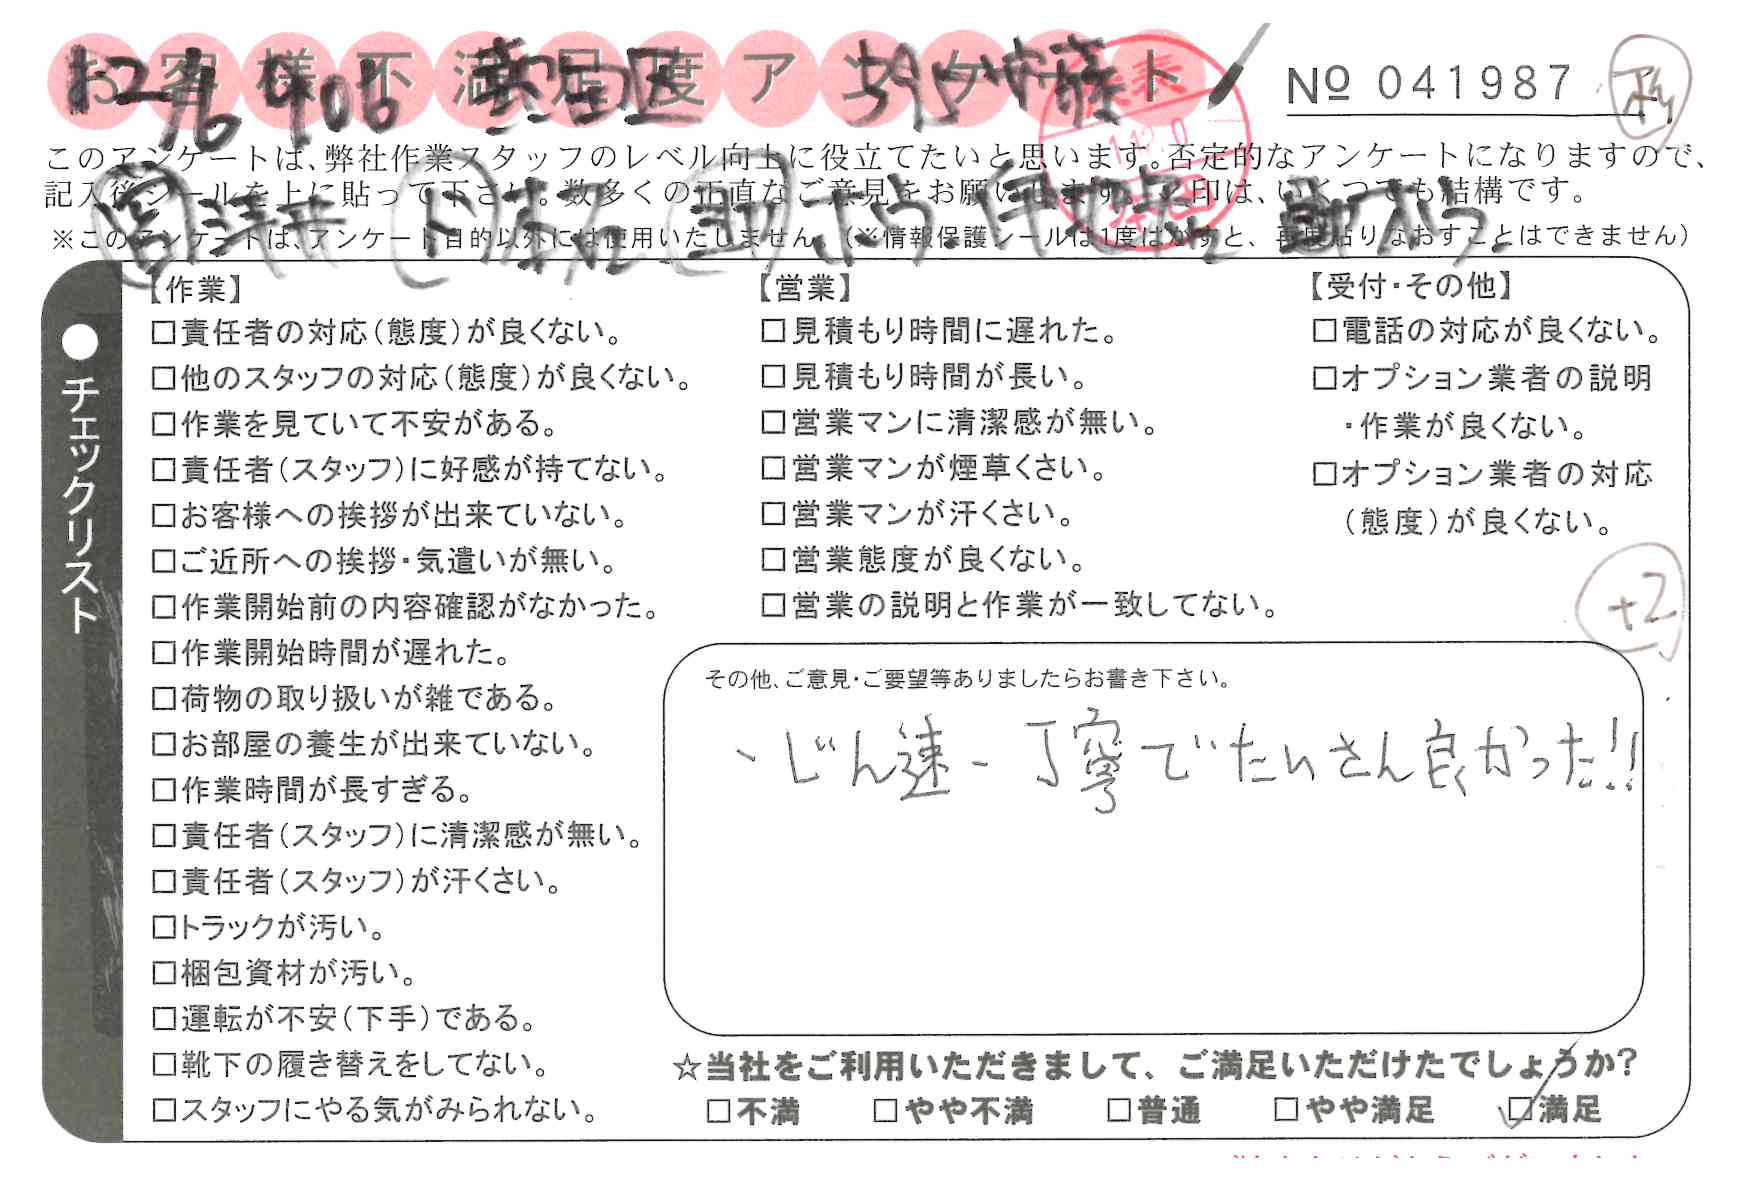 お客様不満足度アンケート
№ 041987
このアンケートは、弊社作業スタッフのレベル向上に役立てたいと思います。否定的なアンケートになりますので、
記入後シールを上に貼って下さい。数多くの正直なご意見をお願いします。✓印は、いくつでも結構です。
※このアンケートは、アンケート目的以外には使用いたしません。(※情報保護シールは1度はがすと、再度貼りなおすことはできません)
●チェックリスト
【作業】
□責任者の対応(態度)が良くない。
□他のスタッフの対応(態度)が良くない。
□作業を見ていて不安がある。
□責任者(スタッフ)に好感が持てない。
□お客様への挨拶が出来ていない。
□ご近所への挨拶・気遣いが無い。
□作業開始前の内容確認がなかった。
□作業開始時間が遅れた。
□荷物の取り扱いが雑である。
□お部屋の養生が出来ていない。
□作業時間が長すぎる。
□責任者(スタッフ)に清潔感が無い。
□責任者(スタッフ)が汗くさい。
□トラックが汚い。
□梱包資材が汚い。
□運転が不安(下手)である。
□靴下の履き替えをしてない。
□スタッフにやる気がみられない。
【営業】
□見積もり時間に遅れた。
□見積もり時間が長い。
□営業マンに清潔感が無い。
□営業マンが煙草くさい。
□営業マンが汗くさい。
□営業態度が良くない。
□営業の説明と作業が一致してない。
【受付・その他】
□電話の対応が良くない。
□オプション業者の説明
・作業が良くない。
□オプション業者の対応
(態度)が良くない。
+2
その他、ご意見・ご要望等ありましたらお書き下さい。
、じん速、丁寧でたいさん良かった!!
☆当社をご利用いただきまして、ご満足いただけたでしょうか?
□不満 □やや不満 □普通 □やや満足 □満足